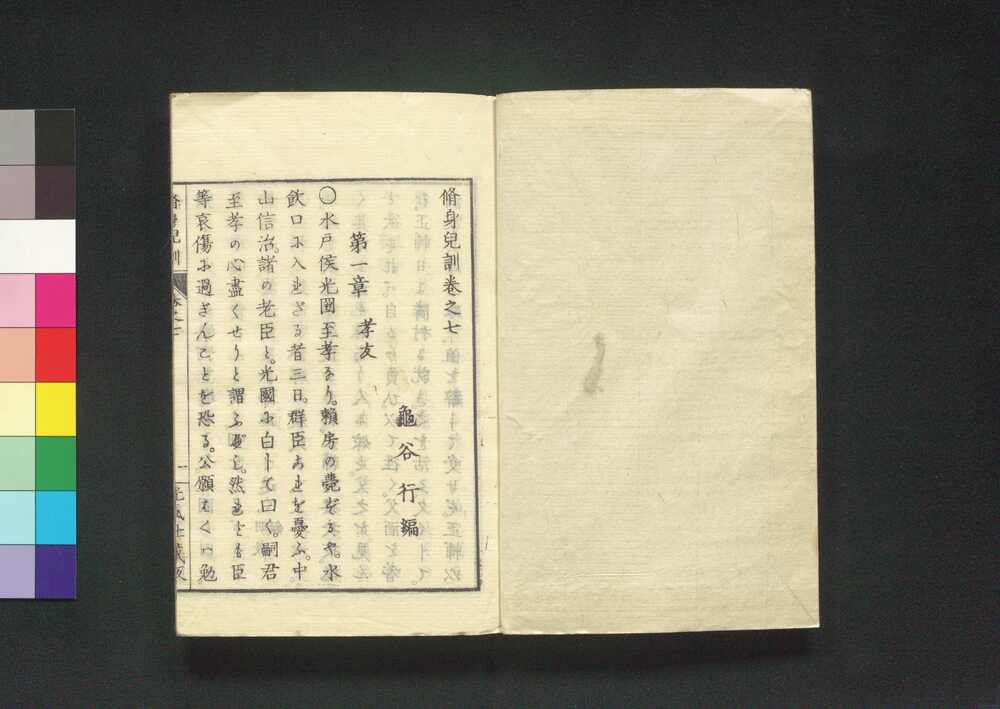 脩身兒訓卷之七
龜谷行編
第一章 孝友
○水戸侯光圀至孝なり。賴房の薨ずるや。水
飲口に入れざる者三日。群臣これを憂ふ。中
山信治。諸の老臣と。光國に白して曰く。嗣君
至孝の心盡くせりと謂ふべし。然れども臣
等哀傷に過ぎんことを恐る。公願はくハ勉
脩身兒訓
卷之七
一
光風社藏版